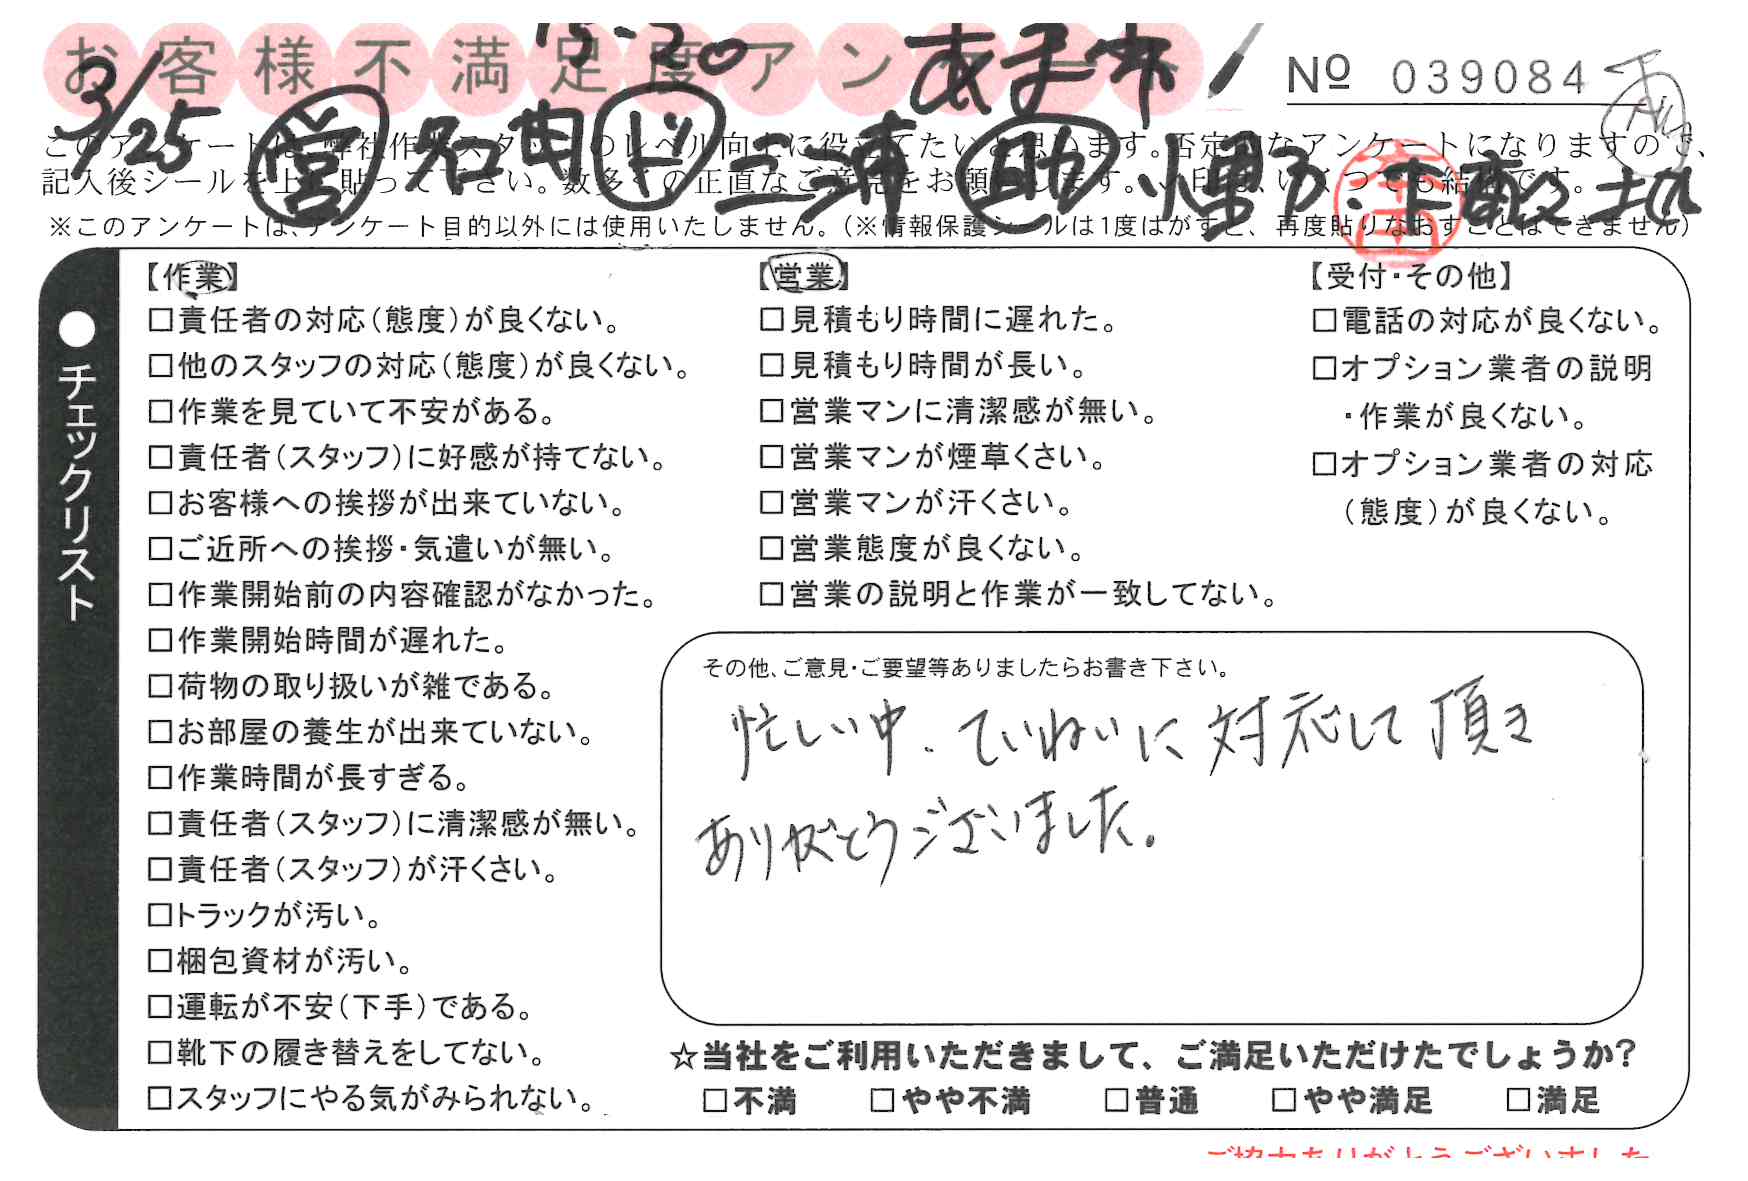 お客様不満足度アンケート
15-20 あま市
No 039084
3/25 営 石田 ド 三浦 助
このアンケートは、弊社作業スタッフのレベル向上に役立てたいと思います。否定的なアンケートになりますので、
記入後シールを上に貼って下さい。数多くの正直なご意見をお願いします。レ印は、いくつでも結構です。
※このアンケートは、アンケート目的以外には使用いたしません。(※情報保護シールは1度はがすと、再度貼りなおすことはできません)
●チェックリスト
【作業】
□責任者の対応(態度)が良くない。
□他のスタッフの対応(態度)が良くない。
□作業を見ていて不安がある。
□責任者(スタッフ)に好感が持てない。
□お客様への挨拶が出来ていない。
□ご近所への挨拶・気遣いが無い。
□作業開始前の内容確認がなかった。
□作業開始時間が遅れた。
□荷物の取り扱いが雑である。
□お部屋の養生が出来ていない。
□作業時間が長すぎる。
□責任者(スタッフ)に清潔感が無い。
□責任者(スタッフ)が汗くさい。
□トラックが汚い。
□梱包資材が汚い。
□運転が不安(下手)である。
□靴下の履き替えをしてない。
□スタッフにやる気がみられない。
【営業】
□見積もり時間に遅れた。
□見積もり時間が長い。
□営業マンに清潔感が無い。
□営業マンが煙草くさい。
□営業マンが汗くさい。
□営業態度が良くない。
□営業の説明と作業が一致してない。
【受付・その他】
□電話の対応が良くない。
□オプション業者の説明
・作業が良くない。
□オプション業者の対応
(態度)が良くない。
その他、ご意見・ご要望等ありましたらお書き下さい。
忙しい中、ていねいに対応して頂き
ありがとうございました。
☆当社をご利用いただきまして、ご満足いただけたでしょうか?
□不満 □やや不満 □普通 □やや満足 □満足
ご協力ありがとうございました